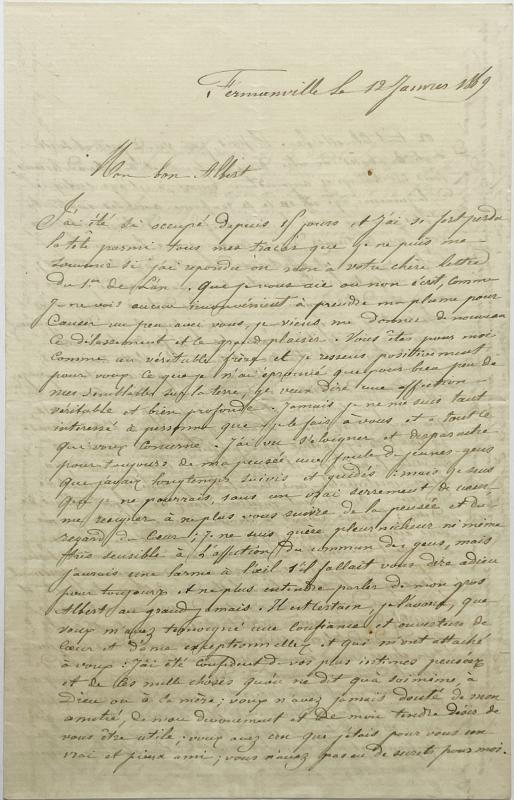 Fermanville le 12 Janvier 1869
Mon bon Albert
J'ai été si occupé depuis 15 jours, et j'ai si fort perdu
la tête parmi tous mes tracas que je ne puis me
souvenir si j'ai répondu ou non à votre chère lettre
du 1er de l'an. Que je vous aie ou non écrit, comme
je ne vois aucun inconvénient à prendre ma plume pour
causer un peu avec vous, je viens me donner de nouveau
ce délassement et le grand plaisir. Vous êtes pour moi
comme un véritable frère et je ressens positivement
pour vous ce que je n'ai éprouvé que pour bien peu de
mes semblables sur la terre, je veux dire une affection
véritable et bien profonde. Jamais je ne me suis tant
intéressé à personne que je le fais à vous et à tout ce
qui vous concerne. J'ai vu s'éloigner et disparaître
pour toujours de ma pensée une foule de jeunes gens
que j'avais longtemps suivis et guidés; mais je sens
que je ne pourrais, sans un vrai serrement de cœur
me résigner à ne plus vous suivre de la pensée et du
regard du cœur; je ne suis guère pleurnicheur ni même
très sensible à l'affection du commun de gens, mais
j'aurais une larme à l'œil s'il fallait vous dire adieu
pour toujours et ne plus entendre parler de mon gros
Albert au grand jamais. Il est certain, je l'avoue, que
vous m'avez témoigné une confiance et ouverture de
cœur et d'âme exceptionnelles et qui m'ont attaché
à vous: j'ai été confident de vos plus intimes pensées
et de ces mille choses qu'on ne dit qu'à soi même, à
Dieu ou à sa mère; vous n'avez jamais douté de mon
amitié, de mon dévouement et de mon tendre désir de
vous être utile; vous avez cru que j'étais pour vous un
vrai et pieux ami; vous n'avez pas eu de secrets pour moi.